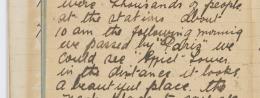 were thousands of people
at the stations about
10 am the following morning
we passed by "Pariz" we
could see Effiel Tower
in the distance. it looks
a beautiful place, the